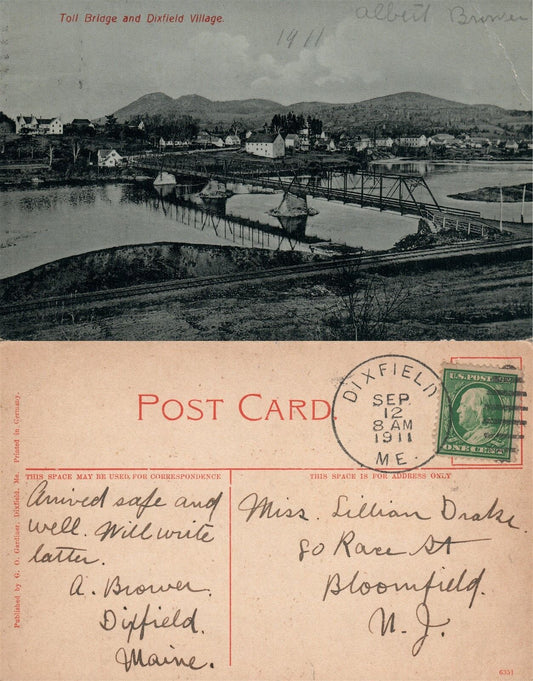 Toll Bridge and Dixfield Village.
Albert Brower
1911
POST CARD.
DIXFIELD
SEP.
12
8 AM
1911
ME.
U.S. POSTAGE
ONE CENT
THIS SPACE MAY BE USED FOR CORRESPONDENCE
THIS SPACE IS FOR ADDRESS ONLY
Published by G. O. Gardner, Dixfield, Me. Printed in Germany.
Arrived safe and
well. Will write
latter.
A. Brower.
Dixfield.
Maine.
Miss. Lillian Drake.
80 Race St
Bloomfield.
N. J.
6351